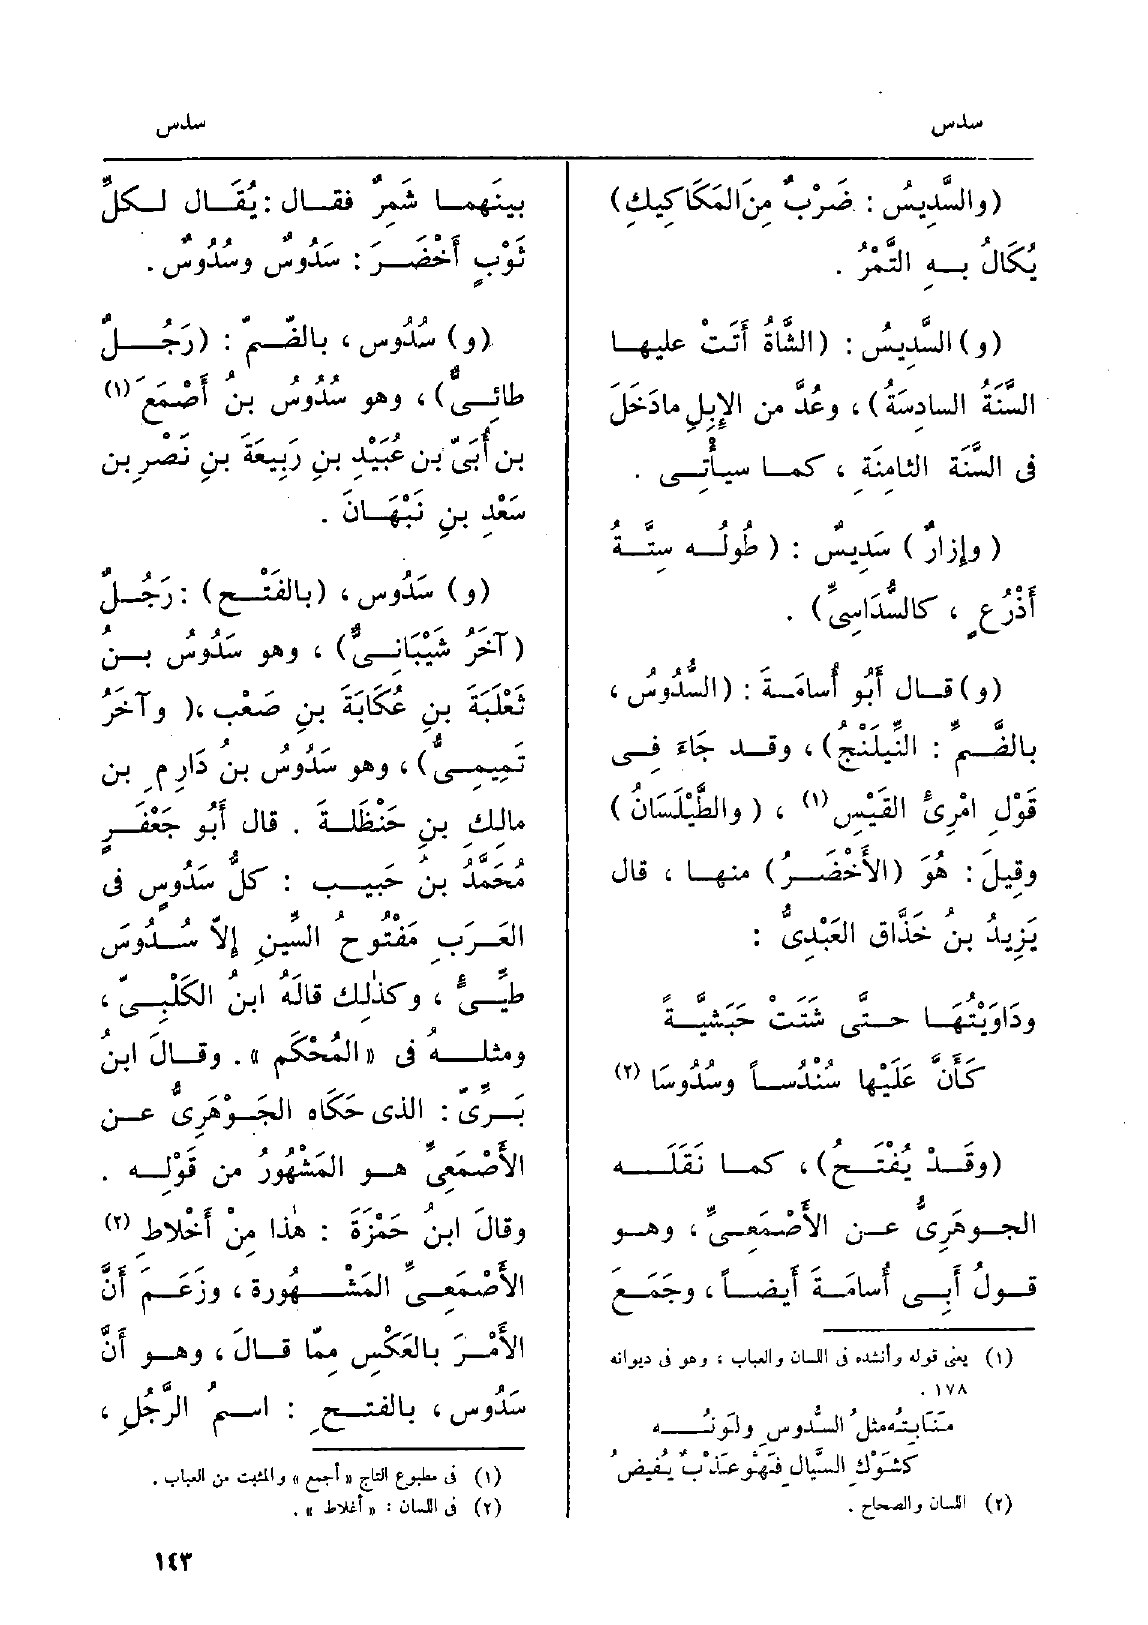 سدس
سدس
(والسَّدِيسُ : ضَرْبٌ مِنَ المَكَاكِيكِ)
يُكَالُ بــه التَّمْرُ .
(و) السَّدِيسُ : (الشَّاةُ أَتَتْ عليهــا
السَّنَةُ السادسَةُ) ، وعُدَّ من الإِبِلِ مادَخَلَ
فى السَّنَة الثامِنَةِ ، كمــا سيأْتــى .
( وإِزارٌ ) سَدِيسٌ : ( طُولــه سِتَّــةُ
أَذْرُعٍ ، كالسُّدَاسِىِّ) .
(و) قــال أَبُو أُسامَــةَ : (السُّدُوسُ ،
بالضَّــمِّ : النِّيلَنْجُ) ، وقــد جَاءَ فِــى
قَوْلِ امْرِئِ القَيْسِ (١) ، ( والطَّيْلَسَانُ )
وقِيلَ : هُوَ (الأَخْضَــرُ) منهــا ، قال
يَزِيدُ بنُ خَذَّاق العَبْدِىُّ :
ودَاوَيْتُهَــا حــتى شَتَتْ حَبَشِيَّــةً
كَأَنَّ عَلَيْها سُنْدُســاً وسُدُوسَا (٢)
(وقَــدْ يُفْتَــح) ، كمــا نَقَلَــه
الجــوهَرِىُّ عــن الأَصْمَعِــىِّ ، وهــو
قــولُ أَبِــى أُسامَــةَ أَيضــاً ، وجَمَــعَ
(١) يعنى قوله وأنشده فى اللسان والعباب ، وهو فى ديوانه
١٧٨ .
مَنَابِتُه مثلُ السُّدوسِ ولَونُــه
كشَوْكِ السَّيَالِ فهْو عَذْبٌ يَفيضُ
(٢) اللسان والصحاح .
بينَهمــا شَمِرٌ فقــال : يُقَــال لــكلِّ
ثَوْبٍ أَخْضَــرَ : سَدُوسٌ وسُدُوسٌ .
(و) سُدُوس ، بالضَّــمّ : (رَجُــلٌ
طائِــىٌّ) ، وهو سُدُوسُ بنُ أَصْمَعَ (١)
بن أُبَىّ بن عُبَيْدِ بنِ رَبِيعَةَ بنِ نَصْرِ بن
سَعْدِ بنِ نَبْهَــانَ .
(و) سَدُوس ، (بالفَتْــح) : رَجُــلٌ
(آخَرُ شَيْبَانــىٌّ) ، وهو سَدُوسُ بــنُ
ثَعْلَبَةَ بنِ عُكَابَةَ بنِ صَعْب ،( وآخَرُ
تَمِيمــىٌّ) ، وهو سَدُوسُ بنُ دَارِمِ بن
مالِك بنِ حَنْظَلــة . قال أَبُو جَعْفَــرٍ
مُحَمَّدُ بنُ حَبِيــب : كلُّ سَدُوسٍ فى
العَــرَبِ مَفْتُوحُ السِّينِ إِلاّ سُــدُوسَ
طَيِّــئٍ ، وكذٰلك قالَهُ ابنُ الكَلْبِــىّ ،
ومثلــهُ فى «المُحْكَمِ ». وقــالَ ابنُ
بَــرِّىّ : الذى حَكَاه الجَــوْهَرِىُّ عــن
الأَصْمَعِىِّ هــو المَشْهُورُ من قَوْلِــه .
وقالَ ابنُ حَمْزَةَ : هٰذا مِنْ أَخْلاط (٢)
الأَصْمَعِــىِّ المَشْــهُورة ، وزَعَــمَ أَنَّ
الأَمْــرَ بالعَكْسِ ممّا قــالَ ، وهــو أَنَّ
سَدُوس ، بالفتــحِ : اســمُ الرَّجُلِ ،
(١) فى مطبوع التاج « أجمع » والمثبت من العباب .
(٢) فى اللسان : « أغلاط » .
١٤٣